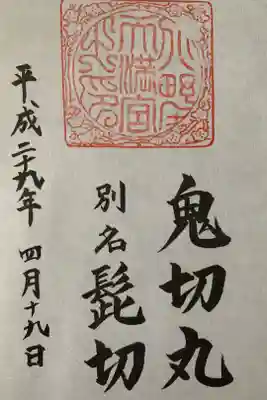 北野天満宮之印
鬼切丸
別名 髭切
平成二十九年 四月十九日